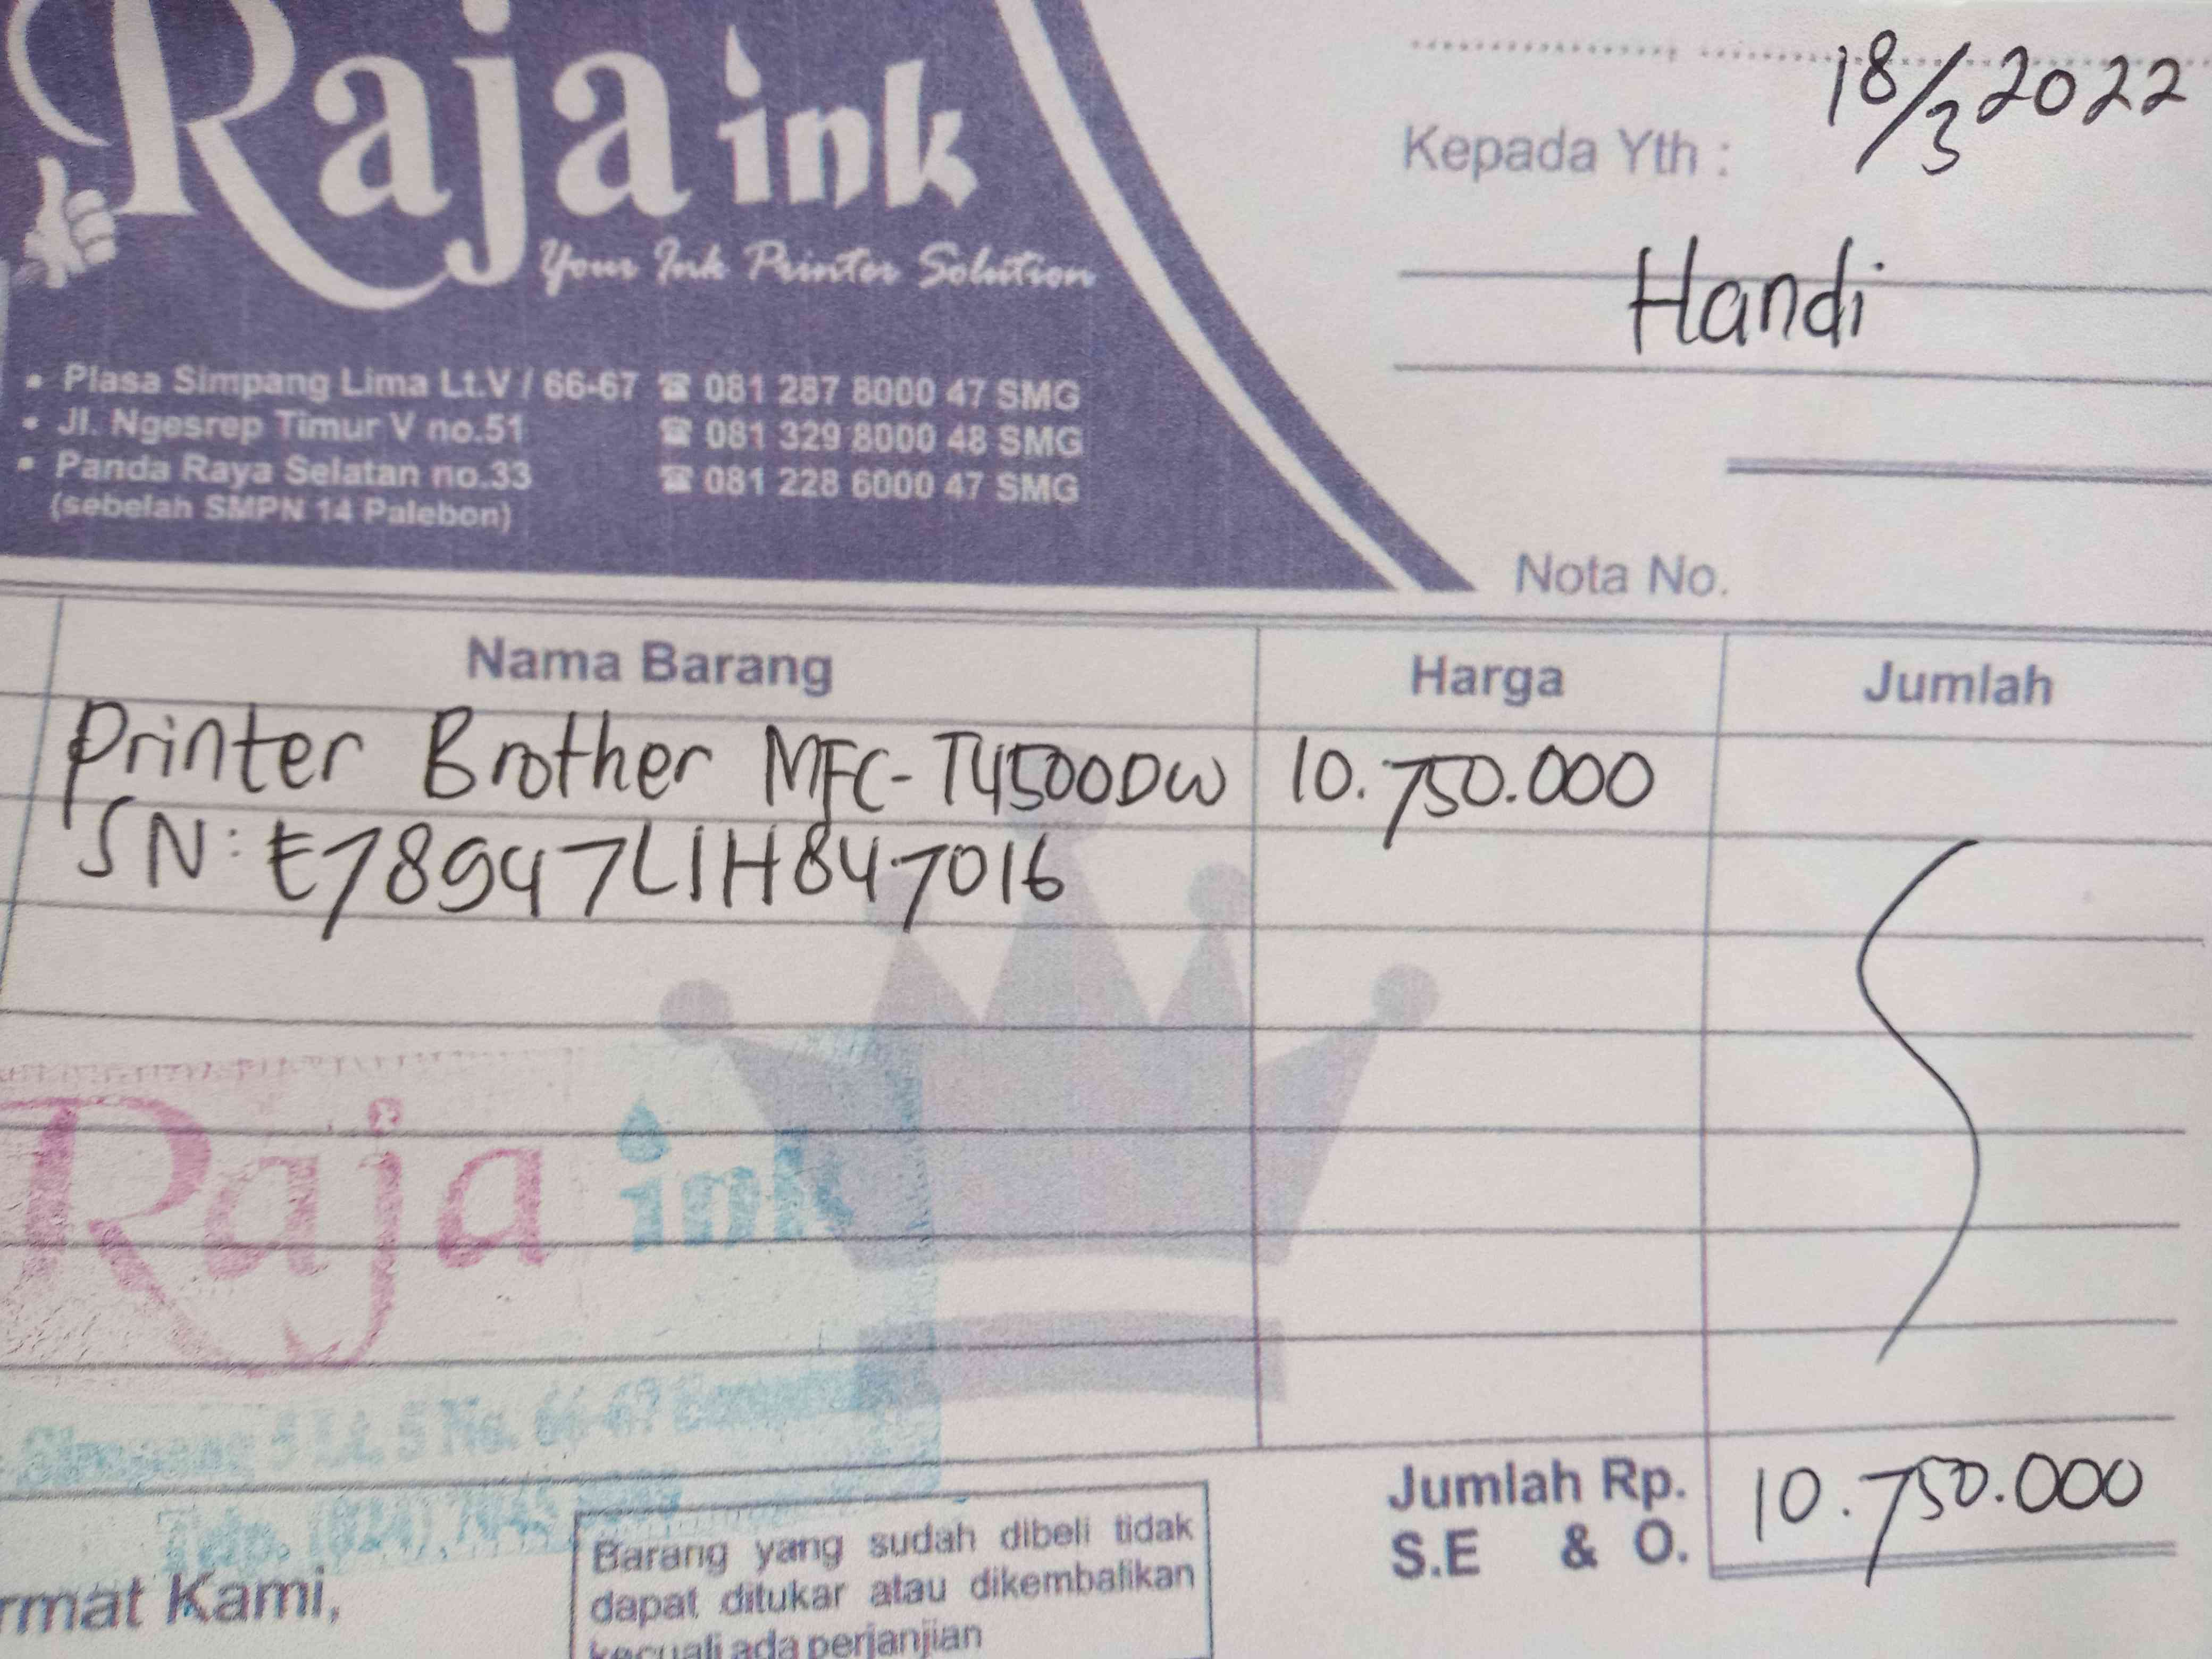 Raja ink
Your Ink Printer Solution
• Plasa Simpang Lima Lt.V / 66-67 ☎ 081 287 8000 47 SMG
• Jl. Ngesrep Timur V no.51 ☎ 081 329 8000 48 SMG
• Panda Raya Selatan no.33 ☎ 081 228 6000 47 SMG
(sebelah SMPN 14 Palebon)
18/3 2022
Kepada Yth :
Handi
Nota No.
Nama Barang Harga Jumlah
Printer Brother MFC-T4500DW 10.750.000
SN: E78947L1H847016
Raja ink
Simpang 5 Lt. 5 No. 66-67
Telp. (024)
Jumlah Rp. 10.750.000
S.E & O.
rmat Kami,
Barang yang sudah dibeli tidak
dapat ditukar atau dikembalikan
kecuali ada perjanjian